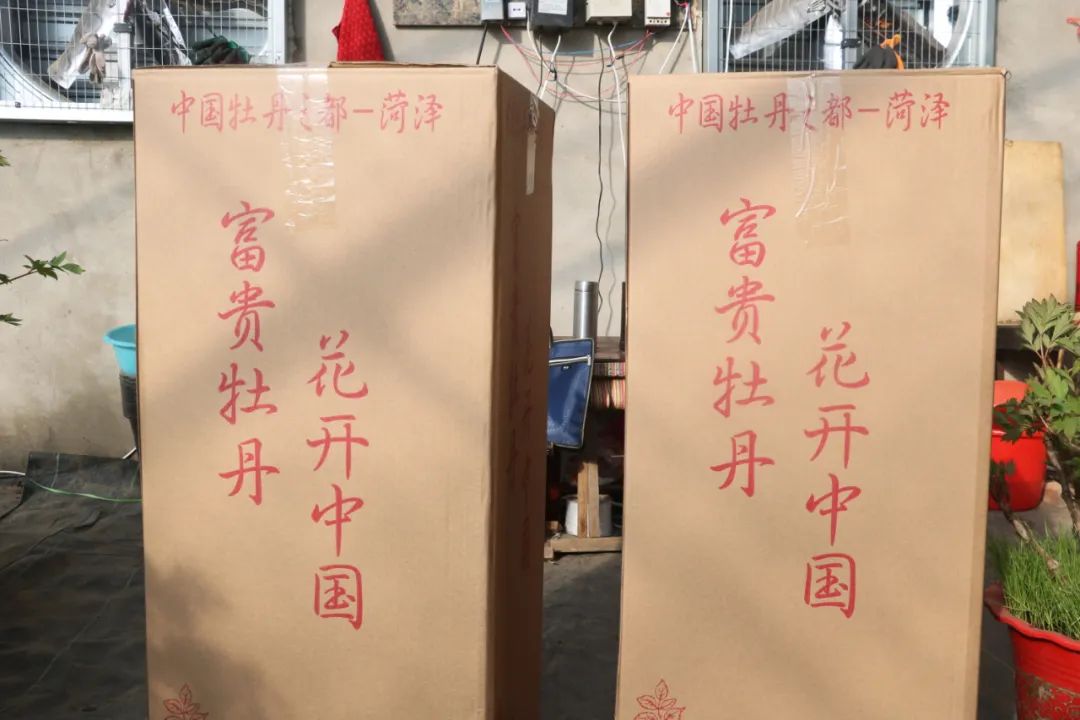 中国牡丹之都-菏泽
富贵牡丹
花开中国
中国牡丹之都-菏泽
富贵牡丹
花开中国